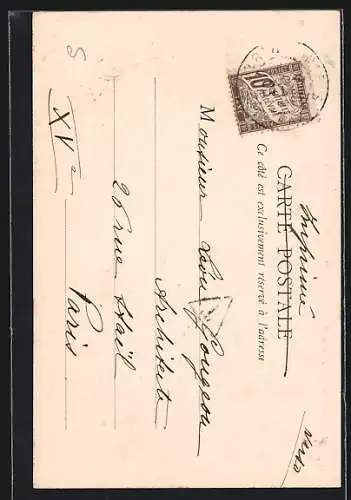 Imprimé
CARTE POSTALE
Ce côté est exclusivement réservé à l'adresse
10
Monsieur Gougeon
Architecte
rue
Paris
XVe
5